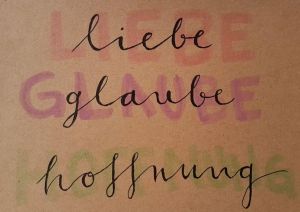 LIEBE
liebe
GLAUBE
glaube
HOFFNUNG
hoffnung